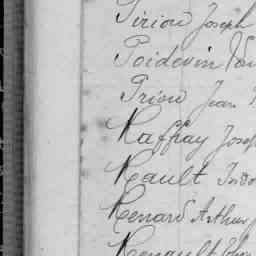 Piriou Joseph
Poidevin
Priou Jean
Raffray Josep
Rault
Renard Arthur
Renault